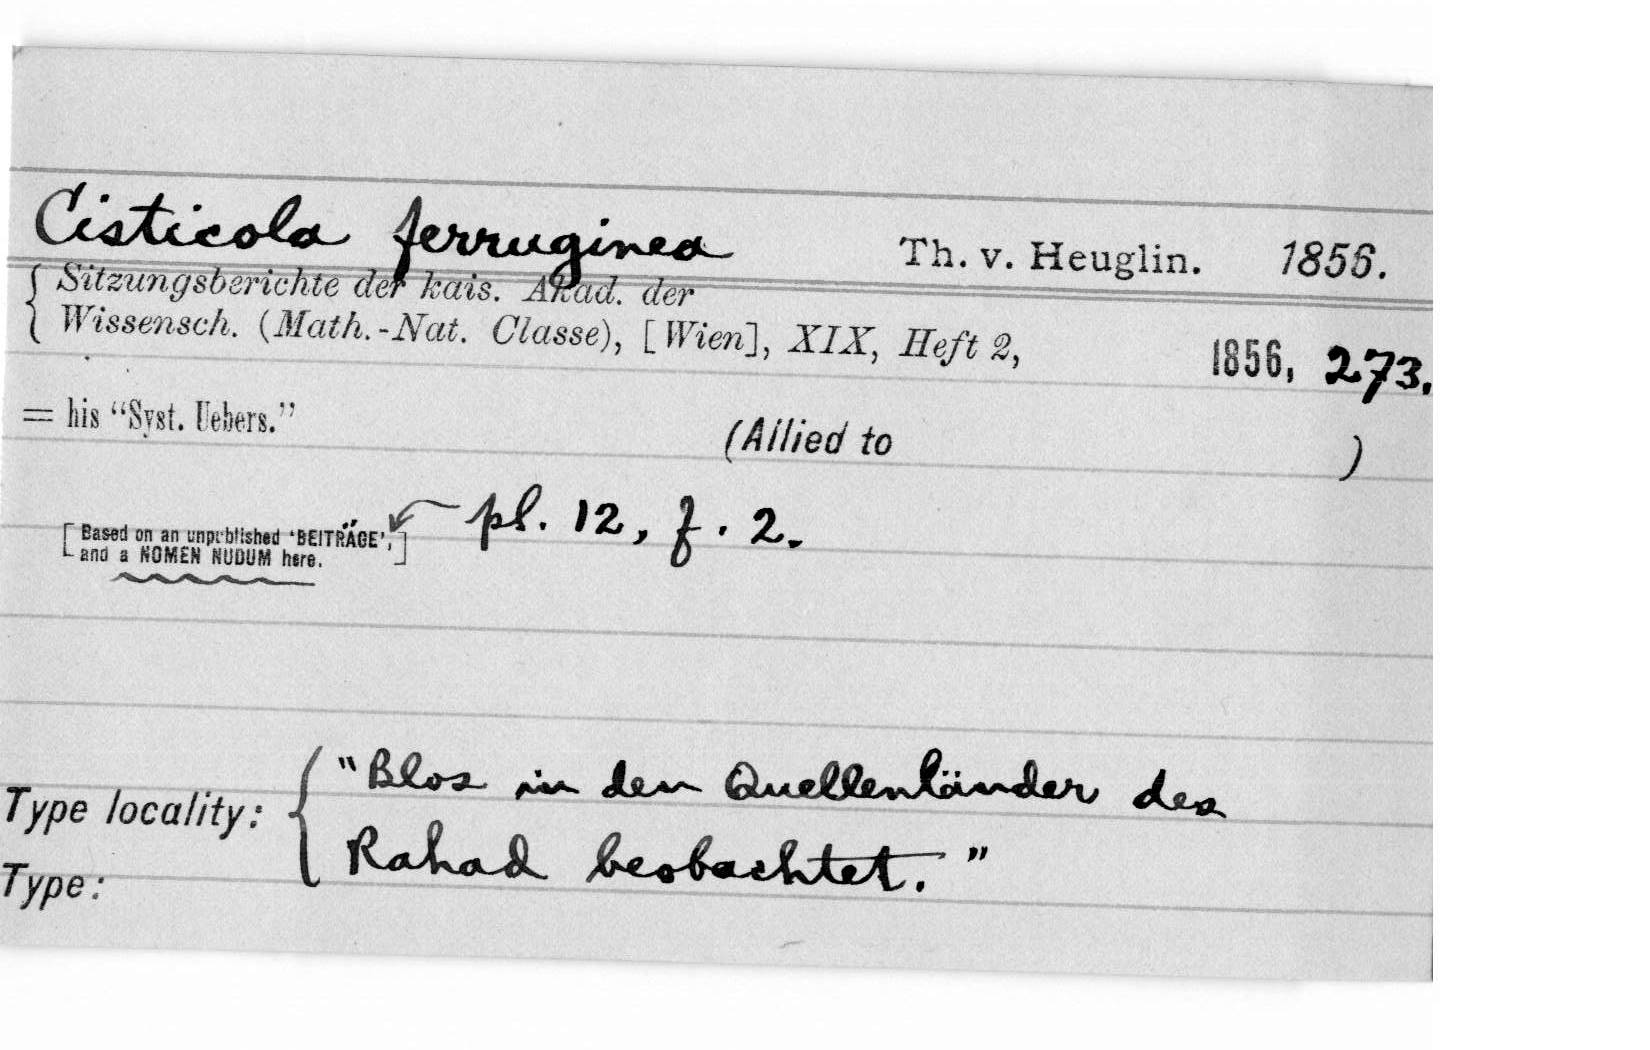 Cisticola ferruginea Th. v. Heuglin. 1856.
Sitzungsberichte der kais. Akad. der
Wissensch. (Math.-Nat. Classe), [Wien], XIX, Heft 2, 1856, 273.
= his "Syst. Uebers."
(Allied to )
pl. 12, f. 2.
[Based on an unpublished 'BEITRÄGE',
and a NOMEN NUDUM here.]
"Blos in den Quellenländer des
Type locality:
Rahad beobachtet."
Type: